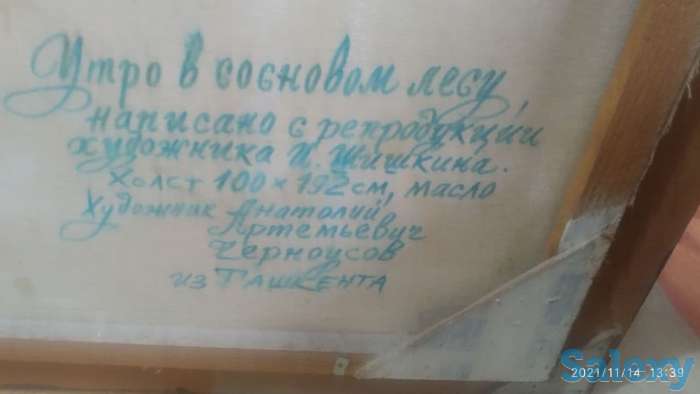 Утро в сосновом лесу,
написано с репродукции
художника И. Шишкина.
Холст 100×192см, масло
Художник Анатолий
Артемьевич
Черноусов
из Ташкента
Salexy
2021/11/14 13:39